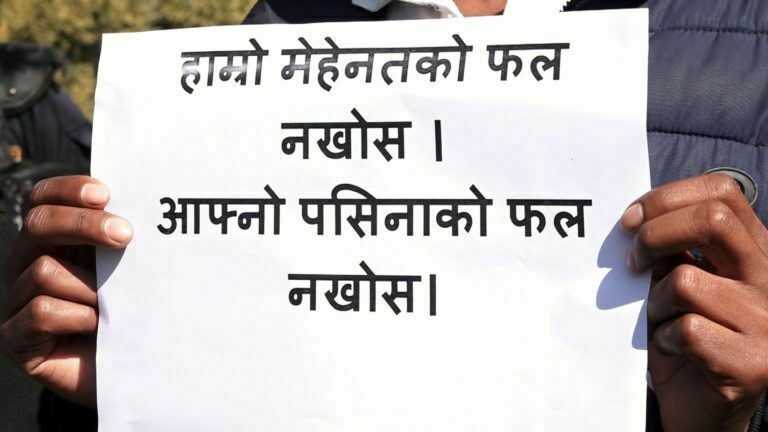 हाम्रो मेहेनतको फल
नखोस ।
आफ्नो पसिनाको फल
नखोस।